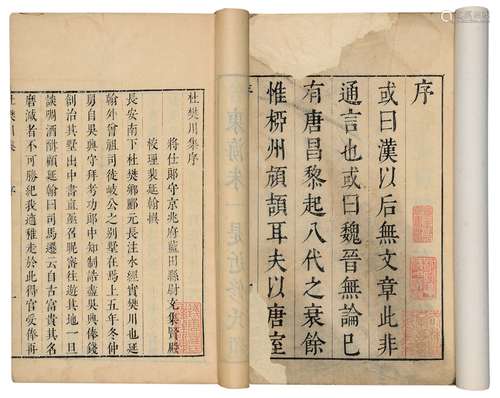 序
或曰漢以后無文章此非
通言也或曰魏晉無論已
有唐昌黎起八代之衰餘
惟桞州頏頡耳夫以唐室
序
杜樊川集序
將仕郎守京兆府藍田縣尉充集賢殿
校理裴延翰撰
長安南下杜樊鄉酈元長注水經實樊川也延
翰外曾祖司徒岐公之別墅在焉上五年冬仲
舅自吳興守拜考功郎中知制誥盡吳興俸錢
創治其墅出中書直亟召昵密往遊其地一旦
談啁酒酣顧延翰曰司馬遷云自古富貴其名
磨滅者不可勝紀我適稚走於此得官受俸再
杜樊川集
序
一